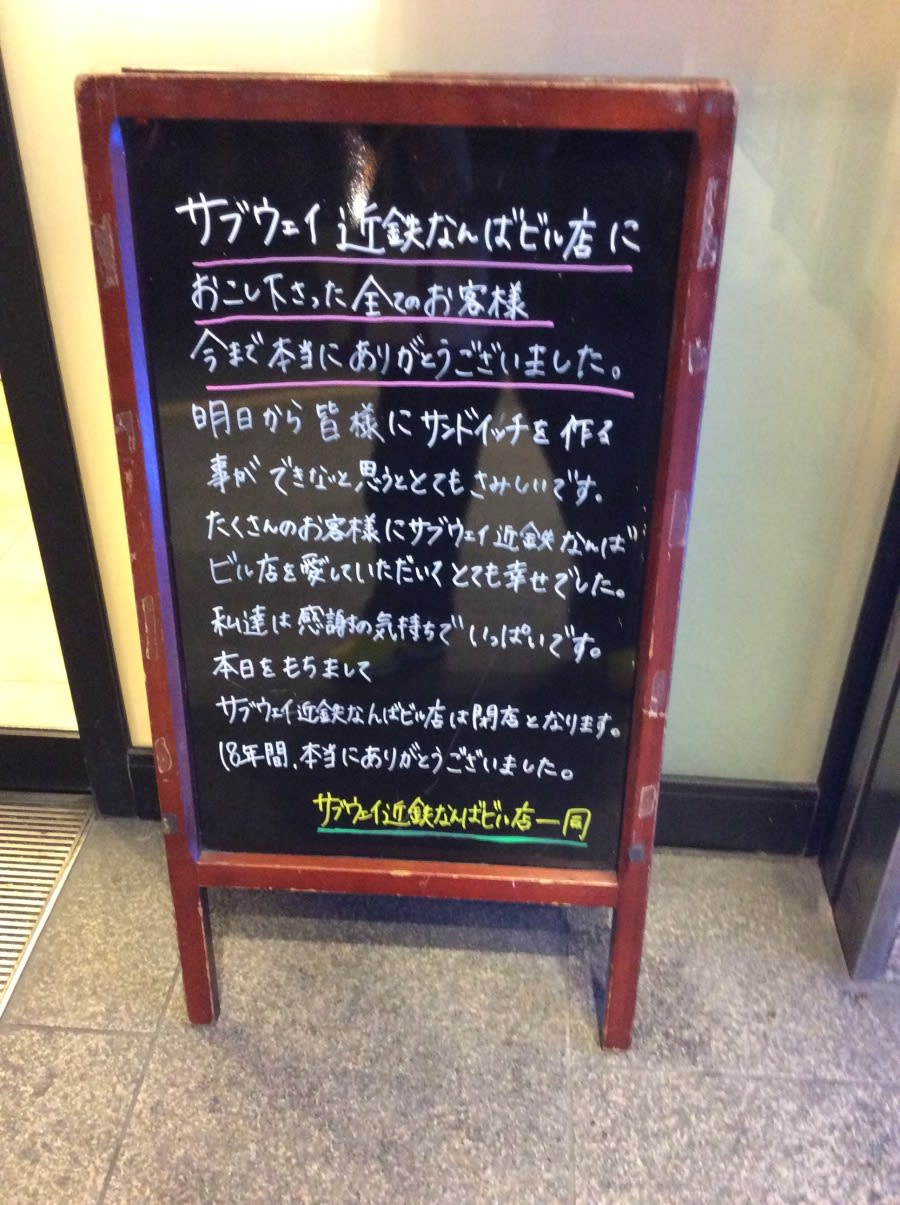 サブウェイ近鉄なんばビル店に
おこし下さった全てのお客様
今まで本当にありがとうございました。
明日から皆様にサンドイッチを作る
事ができないと思うととてもさみしいです。
たくさんのお客様にサブウェイ近鉄なんば
ビル店を愛していただいてとても幸せでした。
私達は感謝の気持ちでいっぱいです。
本日をもちまして
サブウェイ近鉄なんばビル店は閉店となります。
18年間、本当にありがとうございました。
サブウェイ近鉄なんばビル店一同